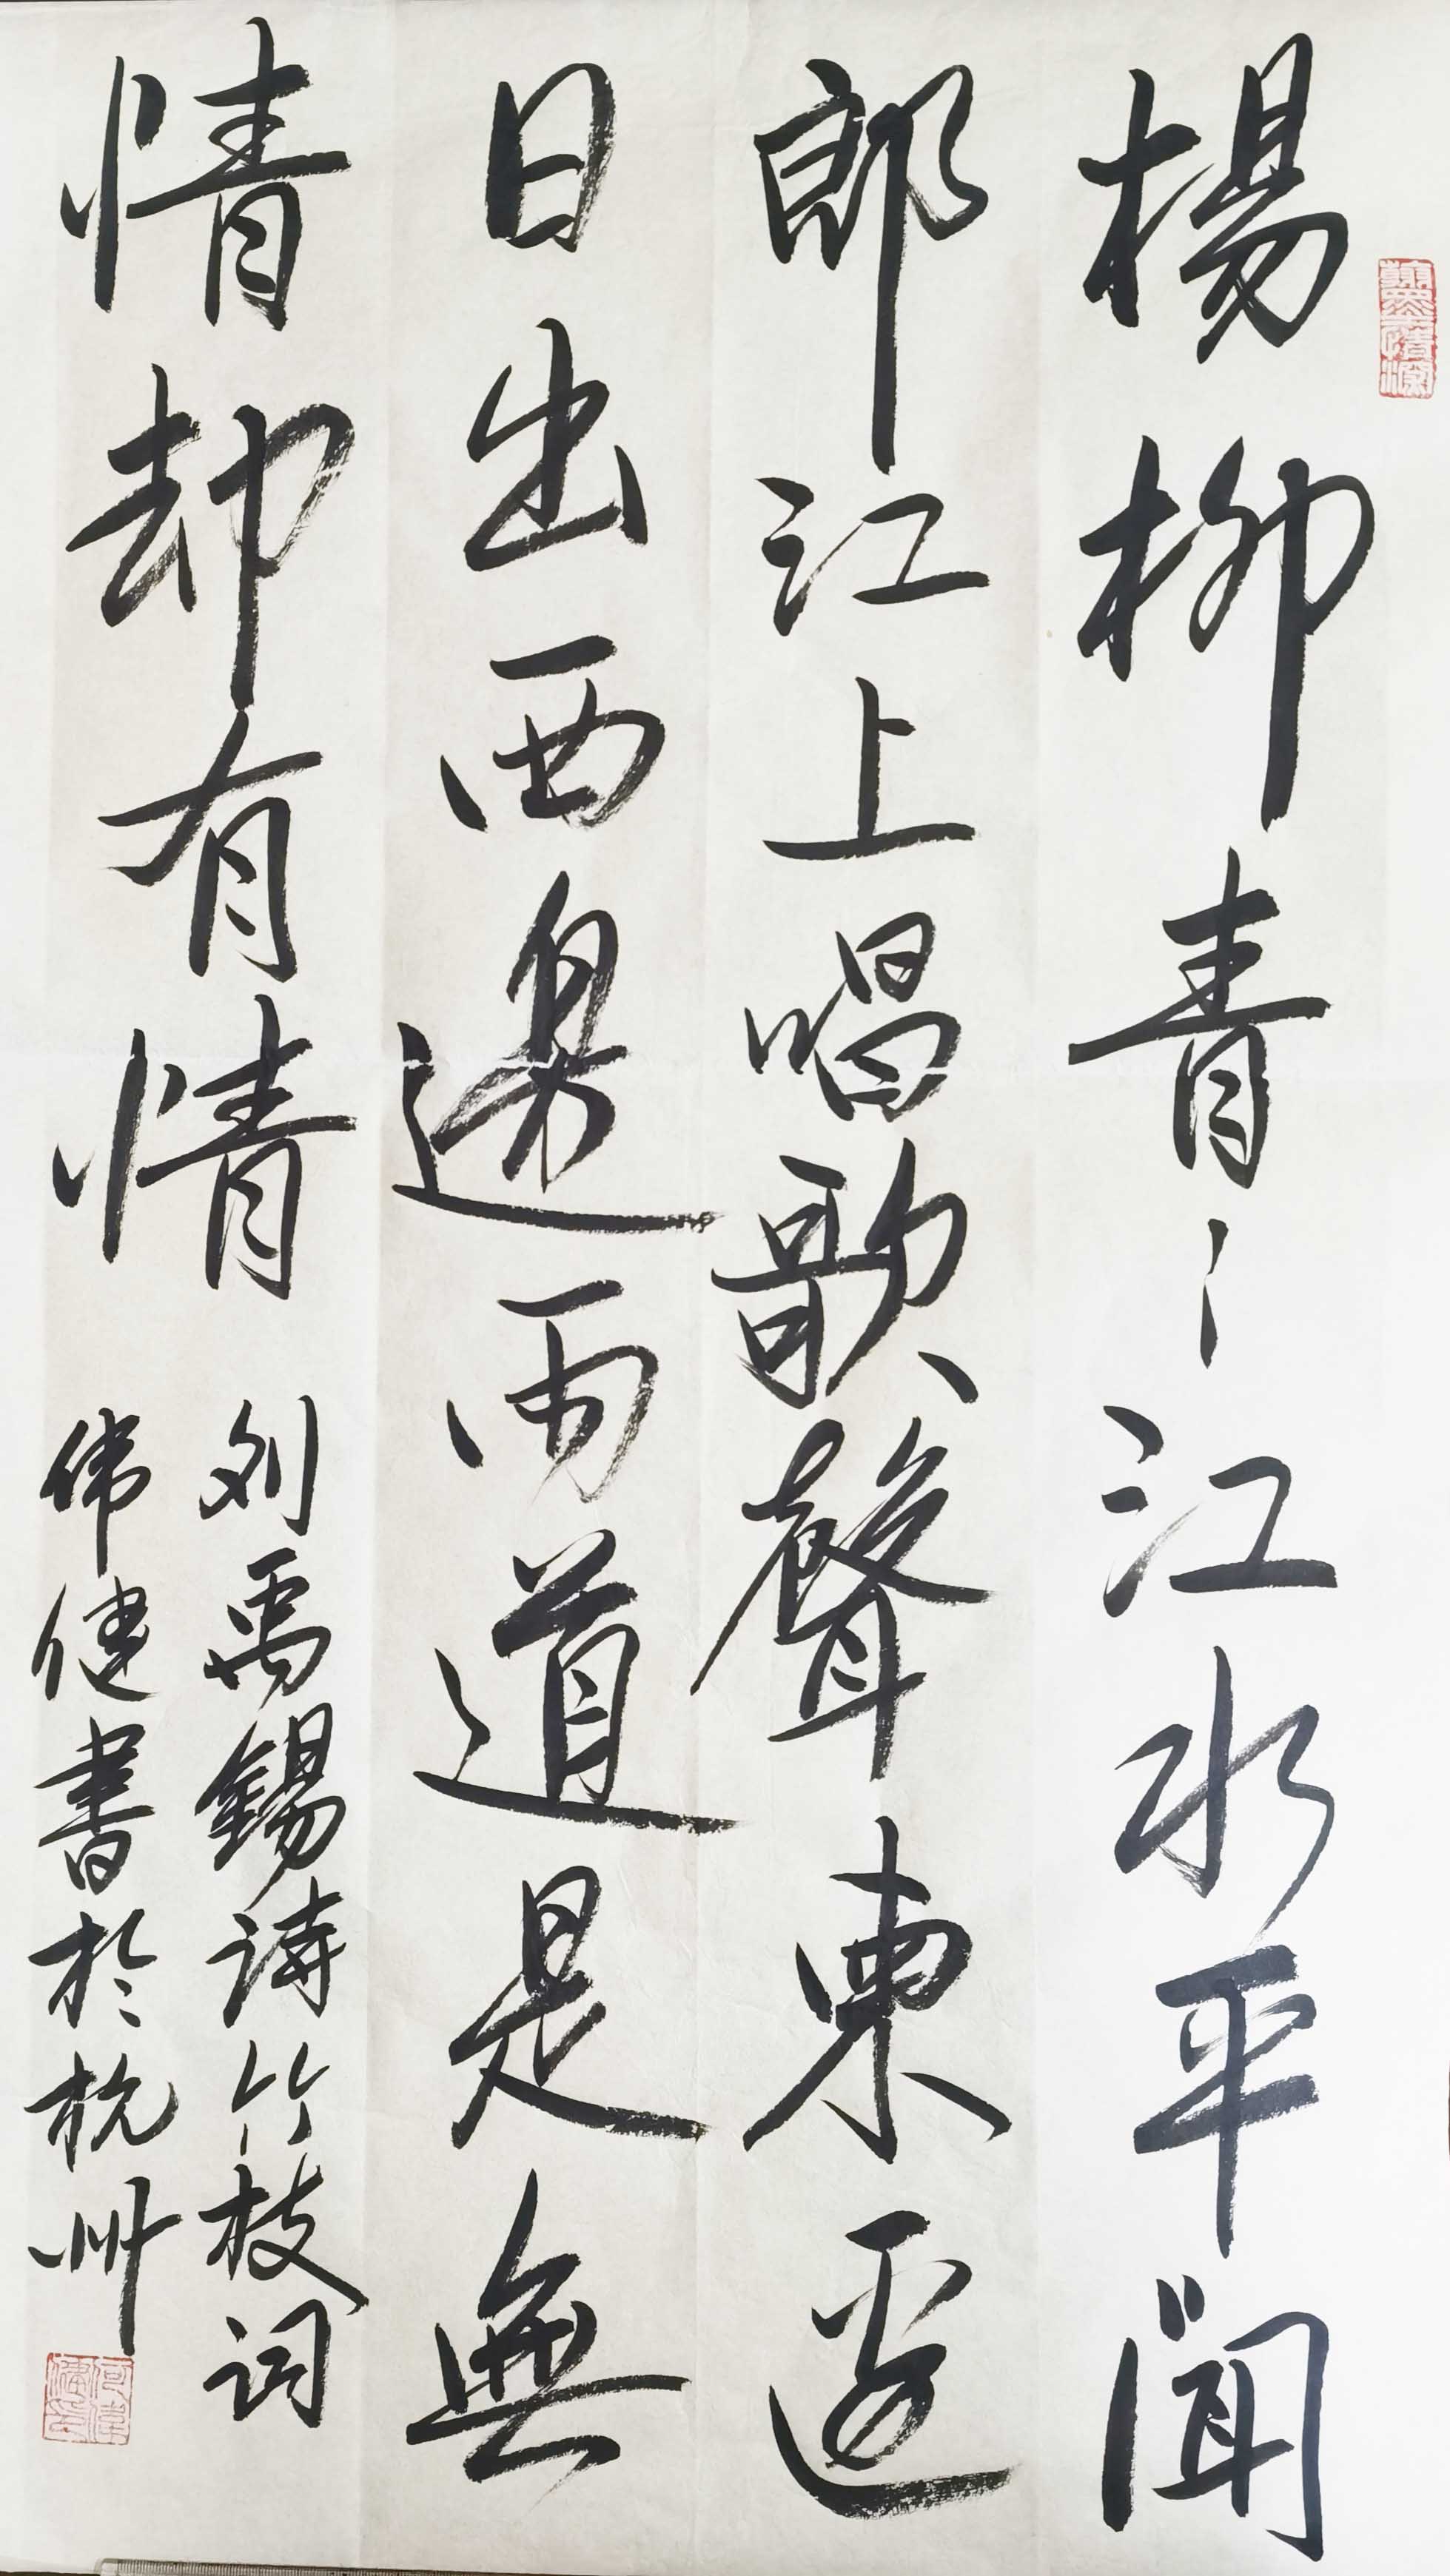 楊柳青〻江水平聞
郎江上唱歌聲東邊
日出西邊雨道是無
情却有情
刘禹錫詩竹枝词
伟健書於杭州